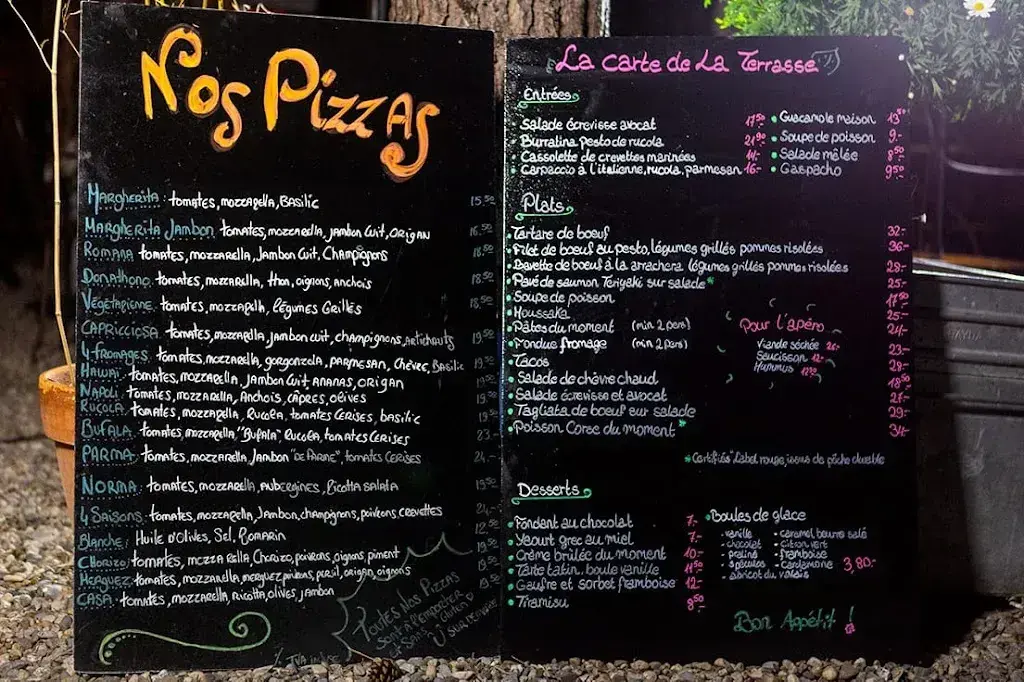 Nos Pizzas
Margherita : tomates, mozzarella, Basilic 15.50
Margherita Jambon tomates, mozzarella, jambon Cuit, Origan 16.50
Romana tomates, mozzarella, Jambon Cuit, Champignons 18.50
Donathono tomates, mozzarella, thon, oignons, anchois 18.50
Végétarienne : tomates, mozzarella, légumes Grillés 18.50
Capricciosa tomates, mozzarella, jambon cuit, champignons, artichauts 19.50
4 fromages : tomates, mozzarella, gorgonzola, parmesan, Chèvre, Basilic 19.50
Hawai : tomates, mozzarella, Jambon Cuit, ananas, origan
Napoli tomates, mozzarella, Anchois, câpres, olives 19.50
Rucola : tomates, mozzarella, Rucola, tomates Cerises, basilic 19.50
Bufala : tomates, mozzarella, "Bufala" Rucola, tomates Cerises 23.-
Parma : tomates, mozzarella, Jambon "de Parme", tomates Cerises 24.-
Norma : tomates, mozzarella, Aubergines, Ricotta salata
4 Saisons : tomates, mozzarella, Jambon, champignons, poivrons, crevettes 24.-
Blanche : Huile d'Olives, Sel, Romarin 12.50
Chorizo : tomates, mozzarella, Chorizo, poivrons, oignons, piment 19.50
Merguez : tomates, mozzarella, merguez, poivrons, persil, origan, oignons
Casa : tomates, mozzarella, Ricotta, olives, jambon
Toutes Nos Pizzas
sont à l'emporter
et Sans Gluten
sur réserve
La carte de La Terrasse
Entrées
Salade écrevisse avocat 17.50
Burratina pesto de rucola 21.90
Cassolette de crevettes marinées 14.-
Carpaccio à l'italienne, rucola, parmesan 16.-
Guacamole maison 13.50
Soupe de poisson 9.-
Salade mêlée 8.50
Gaspacho 9.50
Plats
Tartare de boeuf 32.-
Filet de boeuf au pesto, légumes grillés pommes rissolées 36.-
Bavette de boeuf à la arrachera légumes grillés pommes rissolées 29.-
Pavé de saumon Teriyaki sur salade* 25.-
Soupe de poisson 17.50
Moussaka 25.-
Pâtes du moment (min. 2 pers) 24.-
Fondue fromage (min. 2 pers) 23.-
Tacos 28.-
Salade de chèvre chaud 18.50
Salade écrevisse et avocat 21.-
Tagliata de boeuf sur salade 29.-
Poisson Corse du moment* 34.-
Pour l'apéro
Viande séchée 26.-
Saucisson 12.-
Hummus 12.50
*Certifiés "Label rouge, issus de pêche durable
Desserts
Fondant au chocolat 7.-
Yaourt grec au miel 7.-
Crème brûlée du moment 10.-
Tarte tatin, boule vanille 11.50
Gaufre et sorbet framboise 12.-
Tiramisu 8.50
Boules de glace
- vanille - caramel beurre salé
- chocolat - citron vert
- praliné - framboise
- spéculos - Cardamome 3,80.-
- abricot du valais
Bon Appétit !